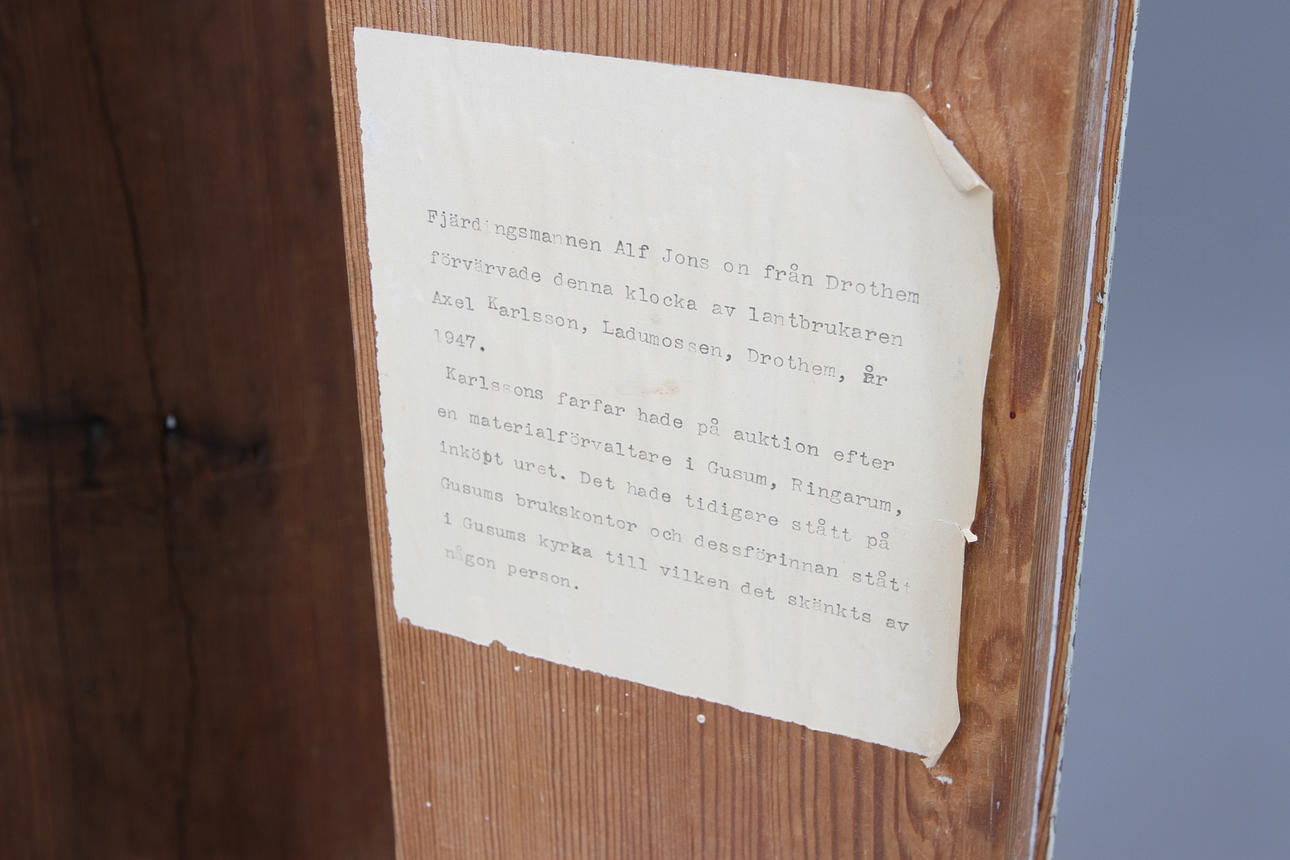 Fjärdingsmannen Alf Jons on från Drothem
förvärvade denna klocka av lantbrukaren
Axel Karlsson, Ladumossen, Drothem, år
1947.
Karlssons farfar hade på auktion efter
en materialförvaltare i Gusum, Ringarum,
inköpt uret. Det hade tidigare stått på
Gusums brukskontor och dessförinnan stått
i Gusums kyrka till vilken det skänkts av
någon person.